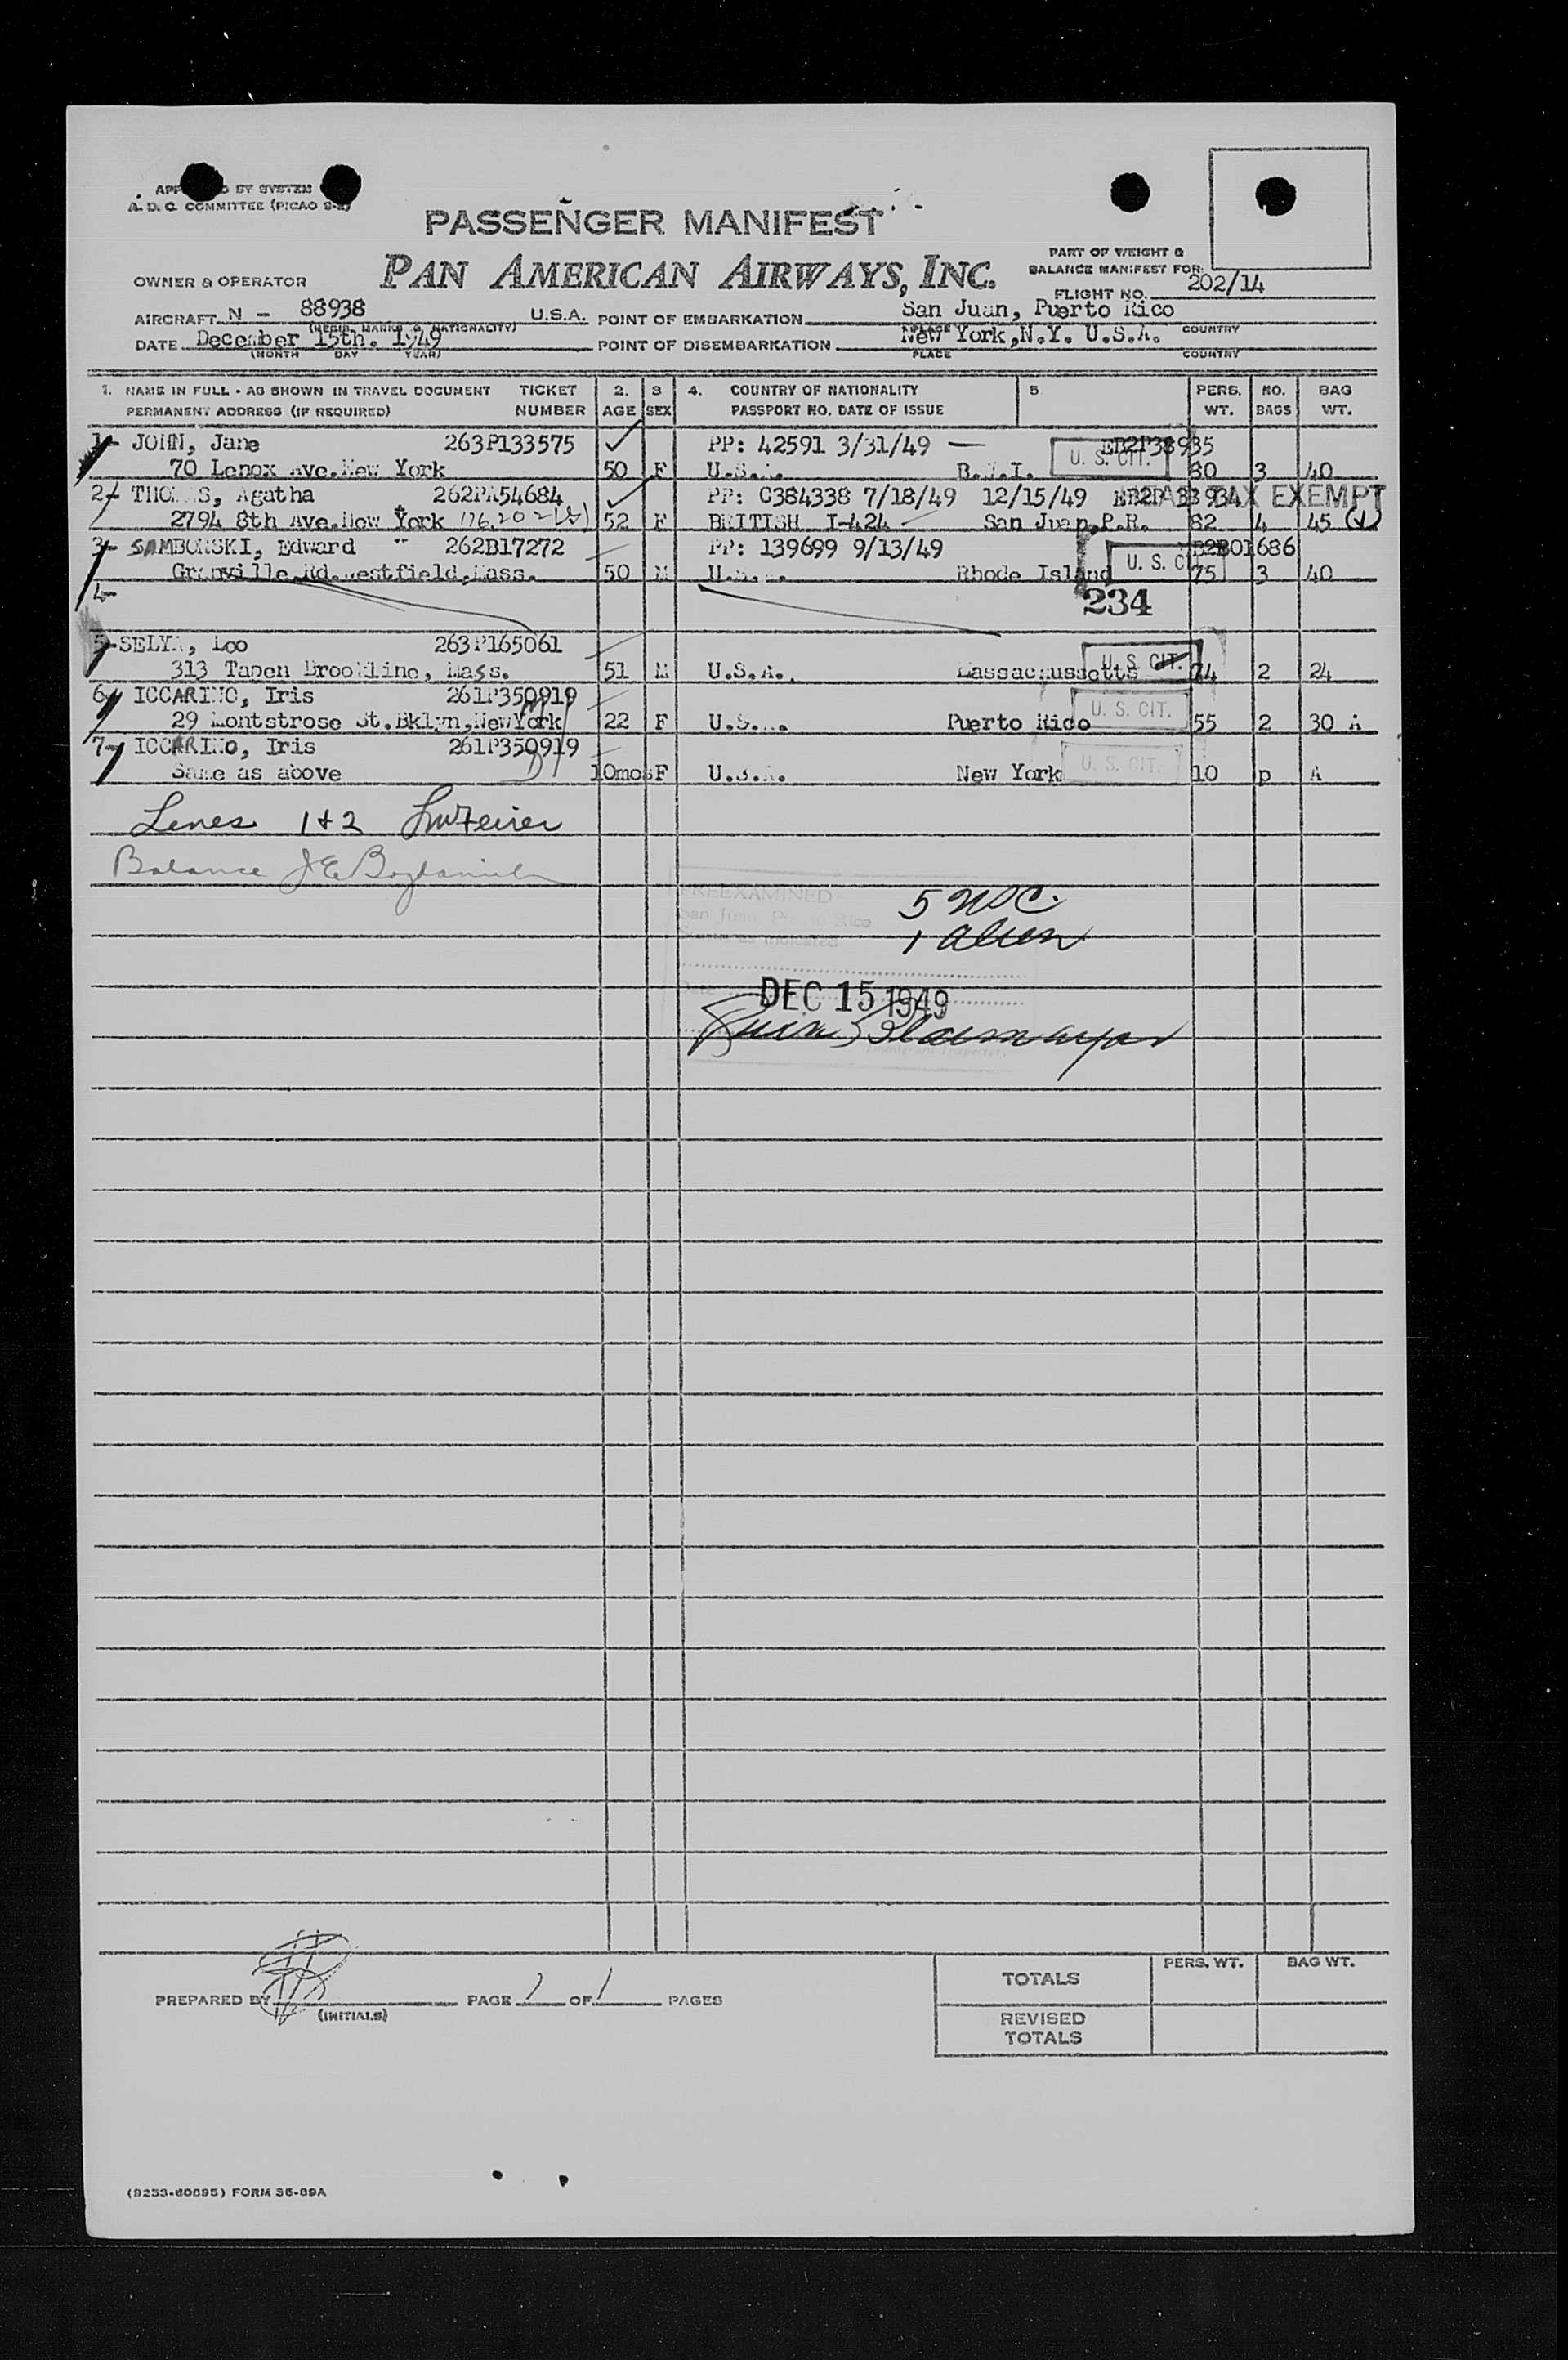 APP BY SYSTEM
A. D. C. COMMITTEE (PICAO S-2)
PASSENGER MANIFEST
PART OF WEIGHT &
OWNER & OPERATOR PAN AMERICAN AIRWAYS, INC. BALANCE MANIFEST FOR:
FLIGHT NO. 202/14
AIRCRAFT N - 88938 U.S.A. POINT OF EMBARKATION San Juan, Puerto Rico
(REGIS. MARKS & NATIONALITY) PLACE COUNTRY
DATE December 15th. 1949 POINT OF DISEMBARKATION New York,N.Y. U.S.A.
(MONTH DAY YEAR) PLACE COUNTRY
1. NAME IN FULL - AS SHOWN IN TRAVEL DOCUMENT TICKET 2. 3 4. COUNTRY OF NATIONALITY 5 PERS. NO. BAG
PERMANENT ADDRESS (IF REQUIRED) NUMBER AGE SEX PASSPORT NO. DATE OF ISSUE WT. BAGS WT.
1- JOHN, Jane 263P133575 PP: 42591 3/31/49 —
70 Lenox Ave.New York 50 F U.S.A. B.W.I. U. S. CIT. 60 3 40
2- THOMAS, Agatha 262PA54684 PP: C384338 7/18/49 12/15/49 TAX EXEMPT
2794 8th Ave.New York 52 F BRITISH I-424 San Juan,P.R. 62 4 45
3- SAMBORSKI, Edward 262B17272 PP: 139699 9/13/49
Granville Rd.Westfield,Mass. 50 M U.S.A. Rhode Island U. S. CIT. 75 3 40
4- 234
5-SELYA, Leo 263P165061
313 Tapen Brookline, Mass. 51 M U.S.A. Massachussetts U. S. CIT. 74 2 24
6- ICCARINO, Iris 261P350919
29 Montstrose St.Bklyn,NewYork 22 F U.S.A. Puerto Rico U. S. CIT. 55 2 30 A
7- ICCARINO, Iris 261P350919
Same as above 10mos F U.S.A. New York U. S. CIT. 10 p A
Lines 1 + 2
Balance
REEXAMINED
San Juan, Puerto Rico
Status as indicated
5 USC.
1 alien
Date DEC 15 1949
Immigrant Inspector.
PREPARED BY PAGE 1 OF 1 PAGES
(INITIALS)
PERS. WT. BAG WT.
TOTALS
REVISED
TOTALS
(9253-60895) FORM 36-89A